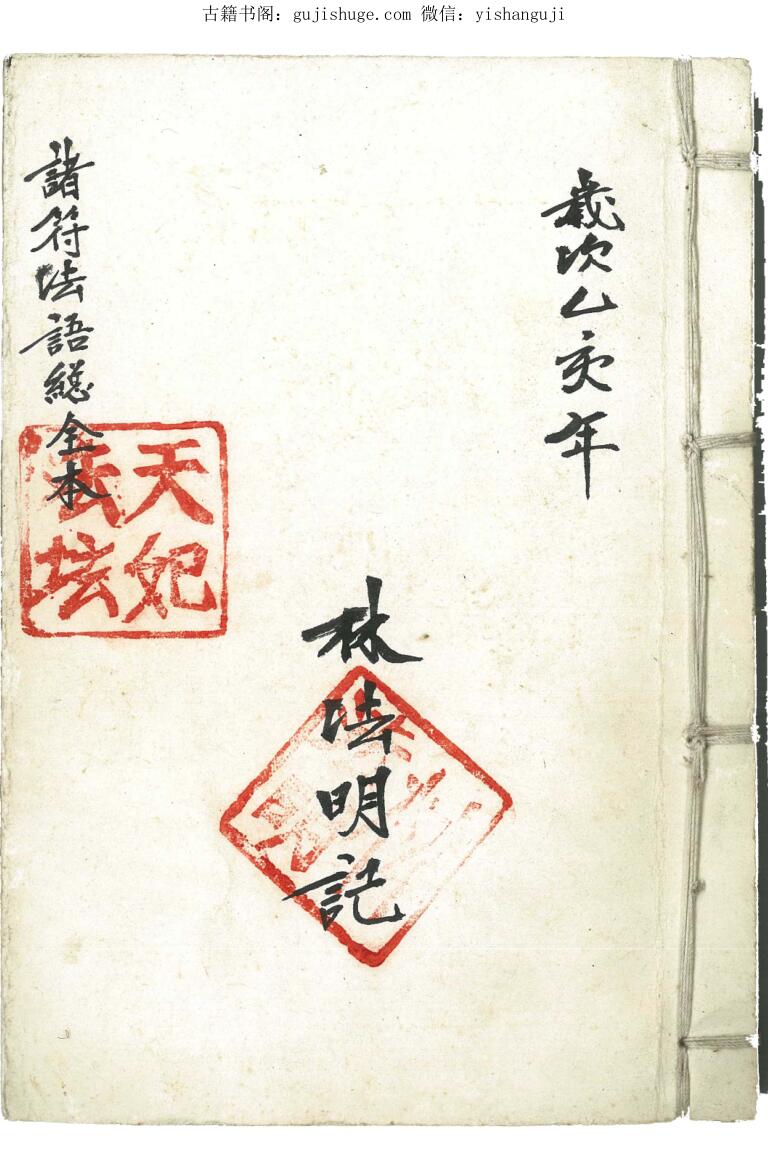 古籍书阁：gujishuge.com 微信：yishanguji
歲次乙亥年
林法明記
諸符法語總全本
天妃
法坛